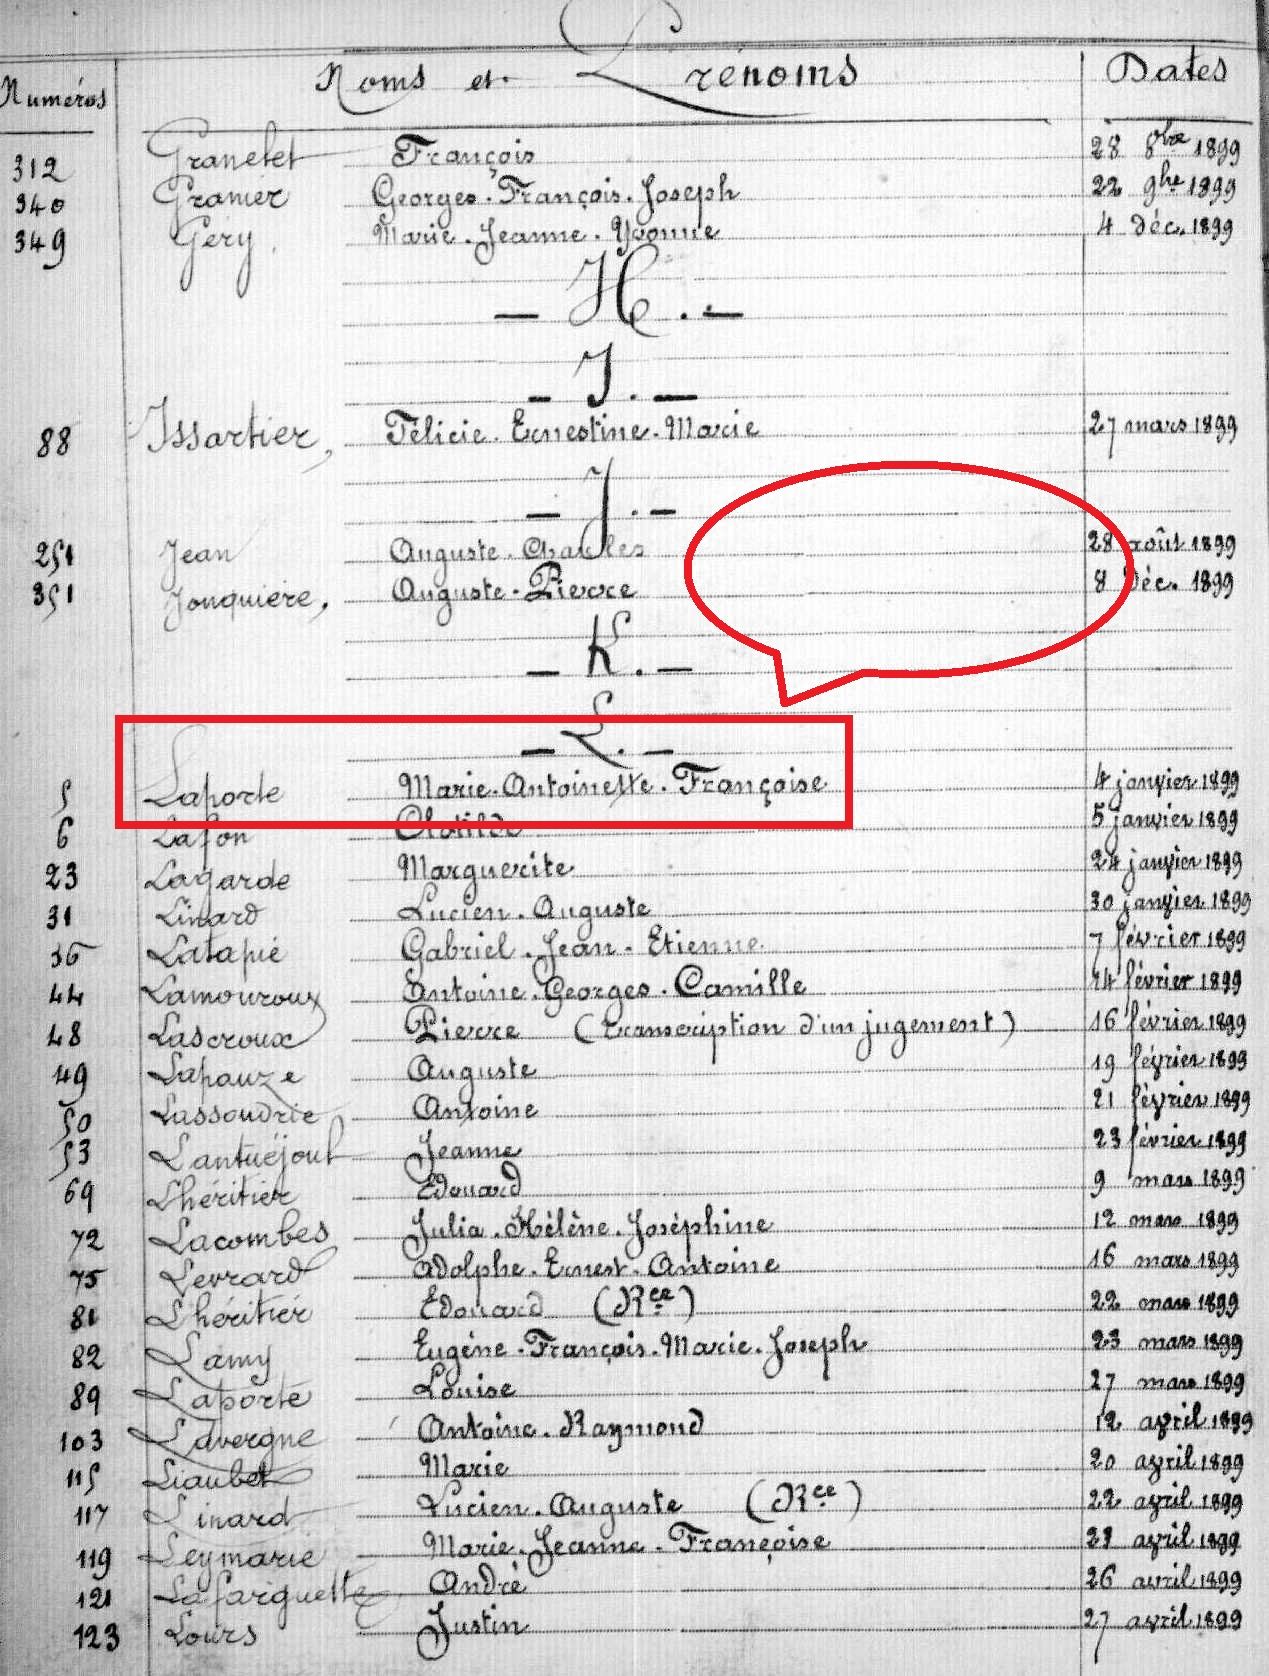 Numéros Noms et Prénoms Dates
312 Granetet François 28 8bre 1899
340 Granier Georges. François. Joseph 22 9bre 1899
349 Géry. Marie. Jeanne. Yvonne 4 déc. 1899
- H. -
- I. -
88 Issartier, Félicie. Ernestine. Marie 27 mars 1899
- J. -
251 Jean Auguste. Charles 28 août 1899
351 Jonquière, Auguste. Pierre 8 déc. 1899
- K. -
- L. -
5 Laporte Marie. Antoinette. Françoise 4 janvier 1899
6 Lafon Clotilde 5 janvier 1899
23 Lagarde Marguerite 24 janvier 1899
31 Linard Lucien. Auguste 30 janvier 1899
36 Latapie Gabriel. Jean. Etienne 7 février 1899
44 Lamouroux Antoine. Georges. Camille 14 février 1899
48 Lascroux Pierre (transcription d'un jugement) 16 février 1899
49 Lapauze Auguste 19 février 1899
50 Lassoudrie Antoine 21 février 1899
53 Lantuéjoul Jeanne 23 février 1899
69 Lhéritier Edouard 9 mars 1899
72 Lacombes Julia. Hélène. Joséphine 12 mars 1899
75 Levrard Adolphe. Ernest. Antoine 16 mars 1899
81 Lhéritiér Edouard (Rce) 22 mars 1899
82 Lamy Eugéne. François. Marie. Joseph 23 mars 1899
89 Laporte Louise 27 mars 1899
103 Lavergne Antoine. Raymond 12 avril 1899
115 Liaubet Marie 20 avril 1899
117 Linard Lucien. Auguste (Rce) 22 avril 1899
119 Leymarie Marie. Jeanne. Françoise avril 1899
121 Lafarguette André 26 avril 1899
123 Lours Justin 27 avril 1899